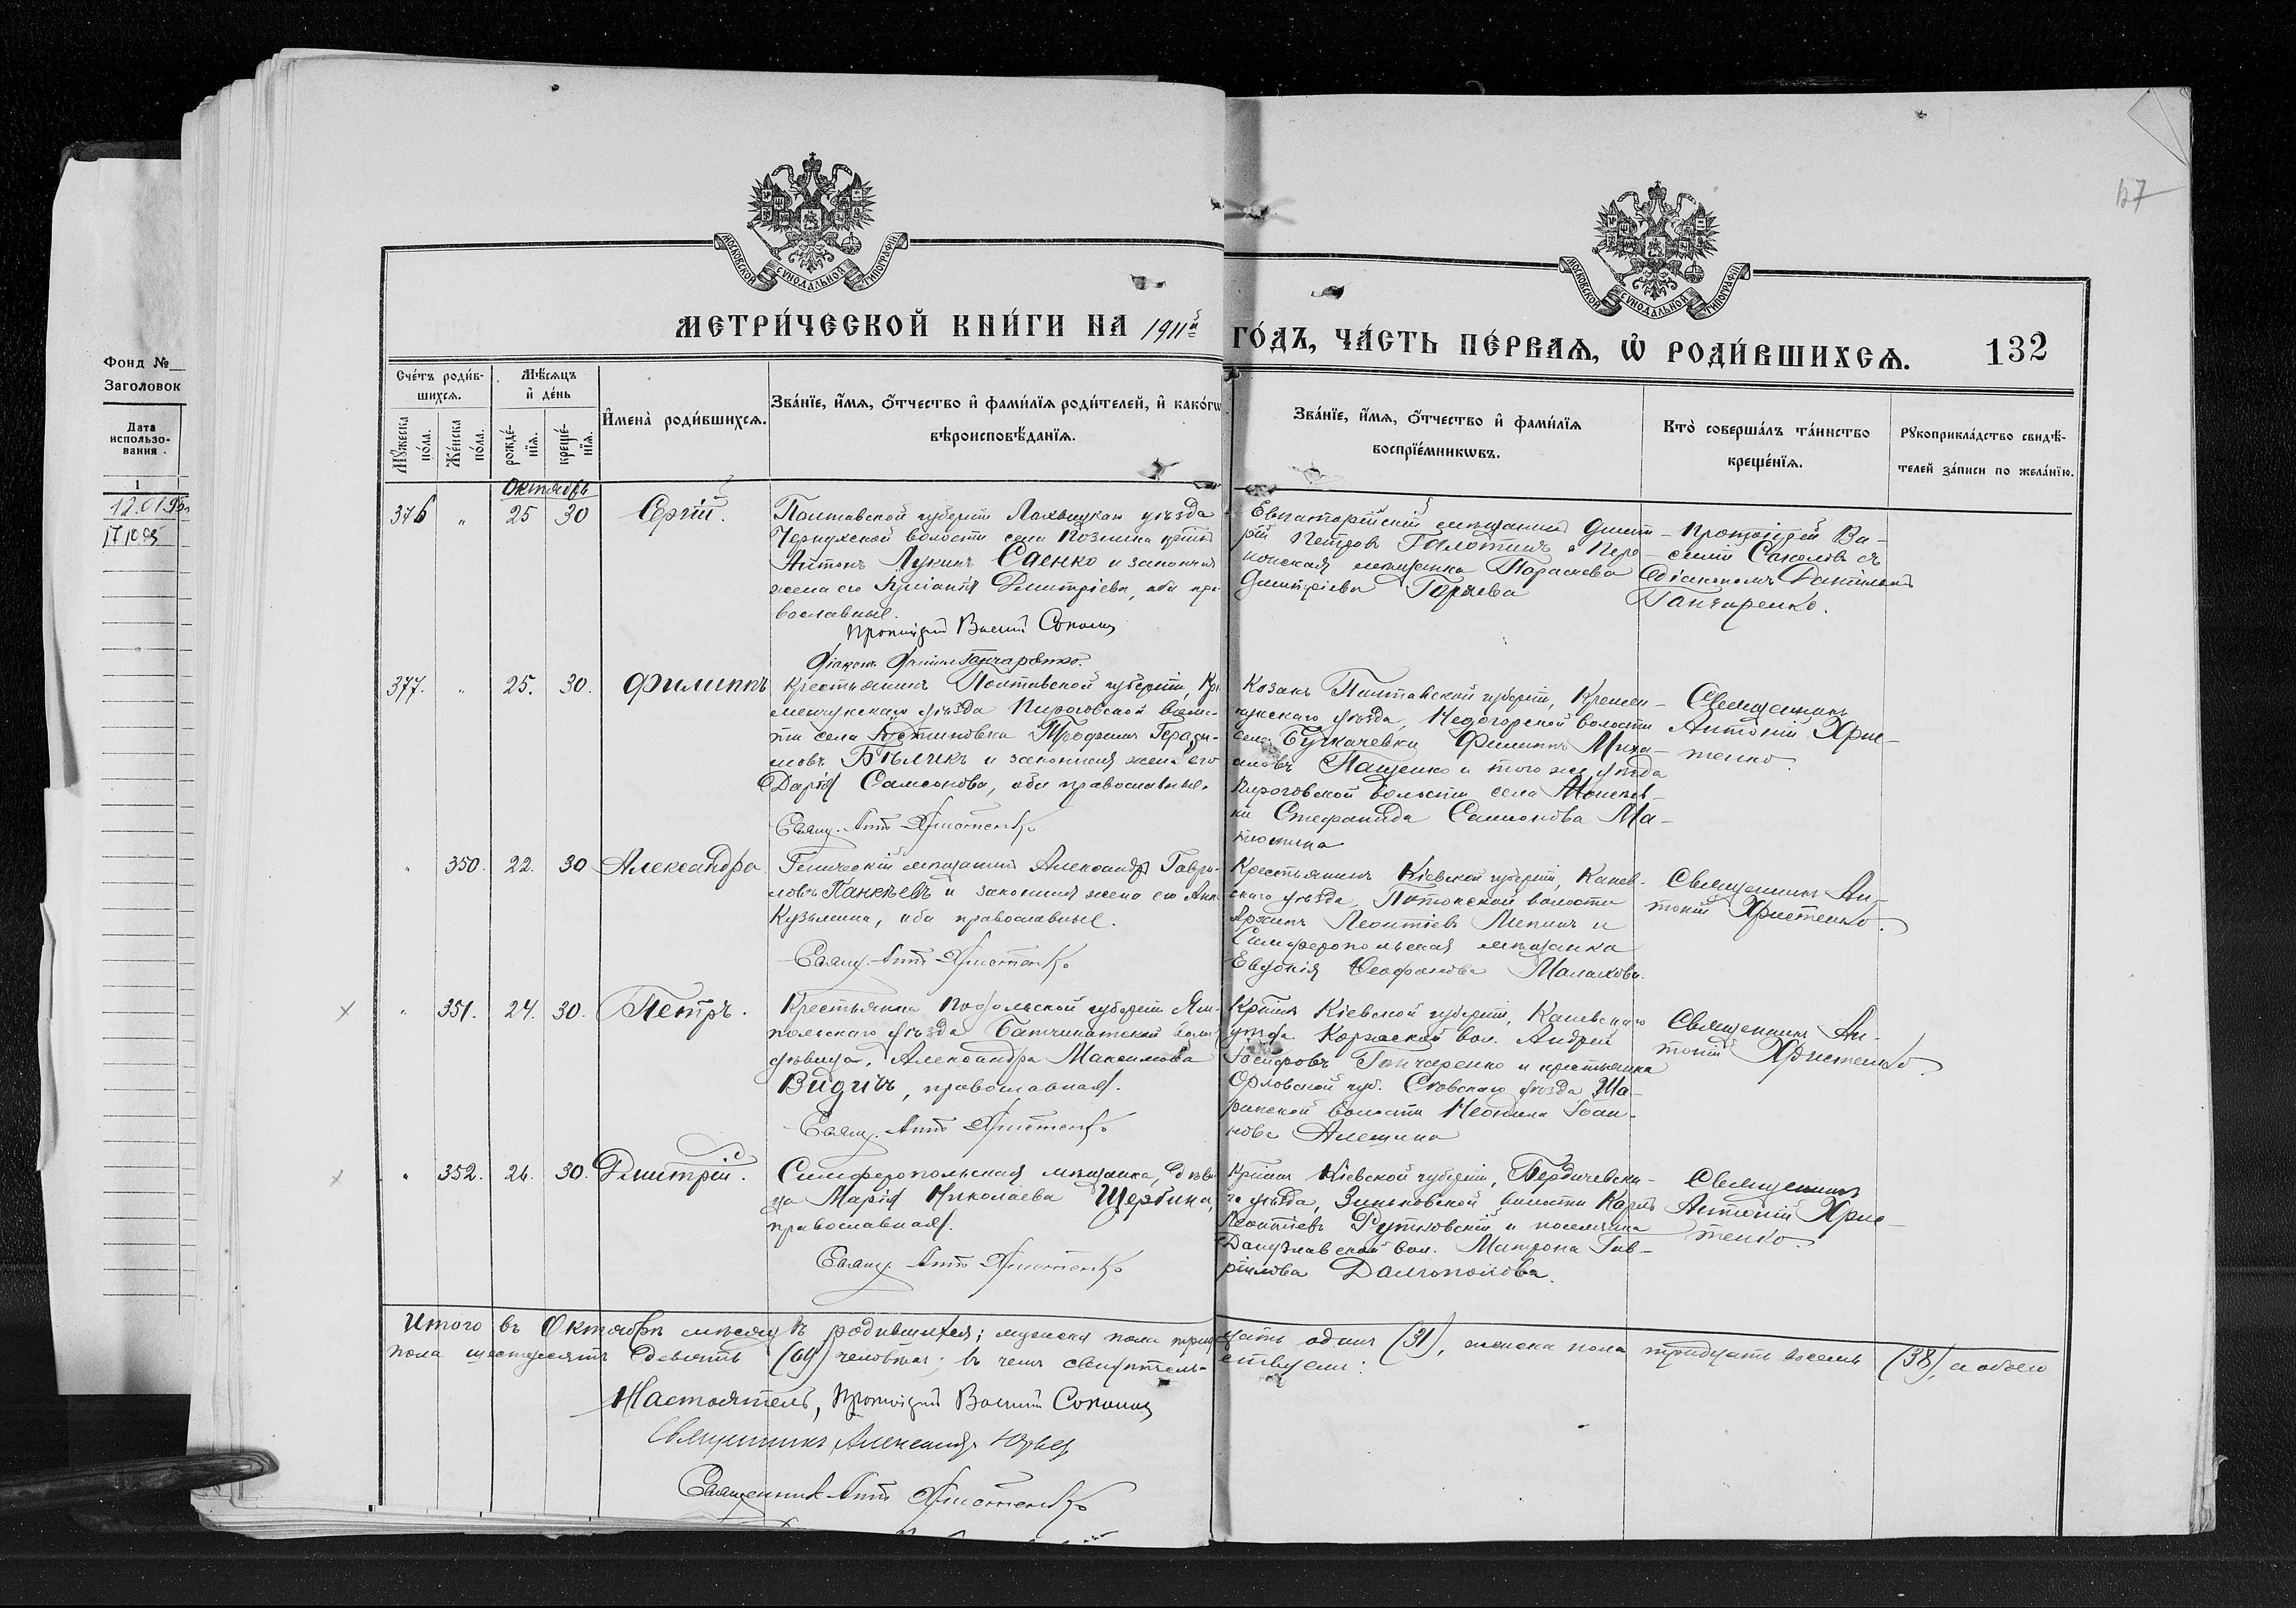 Фонд №
Заголовок
Дата
использо-
вания
1
12.01.95
МОСКОВСКОЙ СУНОДАЛЬНОЙ ТИПОГРАФІИ
МОСКОВСКОЙ СУНОДАЛЬНОЙ ТИПОГРАФІИ
МЕТРИ́ЧЕСКОЙ КНИ́ГИ НА 1911й
ГО́ДЪ, ЧА́СТЬ ПЕ́РВАѦ, Ѡ҆ РОДИ́ВШИХСѦ. 132
Сче́тъ роди́в-
шихсѧ.
Мꙋ́жеска по́ла.
Же́нска по́ла.
Мѣ́сѧцъ
и҆ де́нь
рожде́-нїѧ.
креще́-нїѧ.
И҆мена̀ роди́вшихсѧ.
Зва́нїе, и҆́мѧ, ѻ҆́тчество и҆ фами́лїѧ роди́телей, и҆ како́гѡ
вѣроисповѣ́данїѧ.
Зва́нїе, и҆́мѧ, ѻ҆́тчество и҆ фами́лїѧ
воспрїе́мникѡвъ.
Кто̀ соверша́лъ та́инство
креще́нїѧ.
Рꙋкоприкла́дство свидѣ́-
телей за́писи по жела́нїю.
Октябрь
376 " 25 30 Сергій.
Полтавской губерніи Лохвицкаго уѣзда
Чернухской волости села Позники
Антонъ Лукинъ Саенко и законная
жена его Іуліанія Димитріева, оба пра-
вославные.
Протоіерей Василій Соколовъ
Діаконъ Даніилъ Гончаренко.
Евпаторійскій мѣщанинъ Дмит-
рій Петровъ и Перо-
конская мѣщанка Параскева
Дмитріева
Протоіерей Ва-
силій Соколовъ съ
діакономъ Даніиломъ
Гончаренко.
377. " 25. 30. Филиппъ
Крестьянинъ Полтавской губерніи, Кре-
менчукскаго уѣзда Пироговской волос-
ти села Устиновки Трофимъ Гераси-
мовъ Бѣлчкъ и законная жена его
Дарія Самсонова, оба православные.
Свящ. Ант. Христенко
Козакъ Полтавской губерніи, Кремен-
чукскаго уѣзда, Недогорской волости
села Бугачевки Филиппъ Миха-
иловъ Пащенко и того же уѣзда
Пироговской волости села
ки Стефанида Самсонова Ма-
тюшина
Священникъ
Антоній Хрис-
тенко.
" 350. 22. 30 Александра
Геническій мѣщанинъ Александръ Гаври-
ловъ Панкѣевъ и законная жена его Анна
Кузьмина, оба православные.
Свящ. Ант. Христенко
Крестьянинъ Кіевской губерніи, Канев-
скаго уѣзда, Потокской волости
Архипъ Леонтіевъ Липинъ и
Симферопольская мѣщанка
Евдокія Ѳеофанова Малахова.
Священникъ Ан-
тоній Христенко.
" 351. 24. 30. Петръ.
Крестьянка Подольской губерніи Ям-
польскаго уѣзда волос.
дѣвица, Александра Максимова
православная.
Свящ. Ант. Христенко
Кр-нинъ Кіевской губерніи, Каневскаго
уѣзда Корсаской вол. Андрей
Іосифовъ Гончаренко и крестьянка
Орловской губ. Сѣвскаго уѣзда Ша-
ринской волости Неонила Іоан-
нова Алешина
Священникъ Ан-
тоній Христенко.
" 352. 26. 30. Дмитрій.
Симферопольская мѣщанка, дѣви-
ца Марія Николаева Щербина,
православная.
Свящ. Ант. Христенко
Кр-нинъ Кіевской губерніи, Бердичевска-
го уѣзда, Зиньковской волости Карпъ
Леонтіевъ Рутковскій и поселянка
Донузлавской вол. Матрона Гав-
рілова Долгополова.
Священникъ
Антоній Хрис-
тенко.
Итого въ Октябрѣ мѣсяцѣ родившихся: мужска пола тридцать одинъ (31), женска пола тридцать восемь (38), а обоего
пола шестьдесятъ девять (69) человѣкъ; въ чемъ свидѣтель-ствуемъ:
Настоятель, Протоіерей Василій Соколовъ
Священникъ Александръ
Священникъ Ант. Христенко